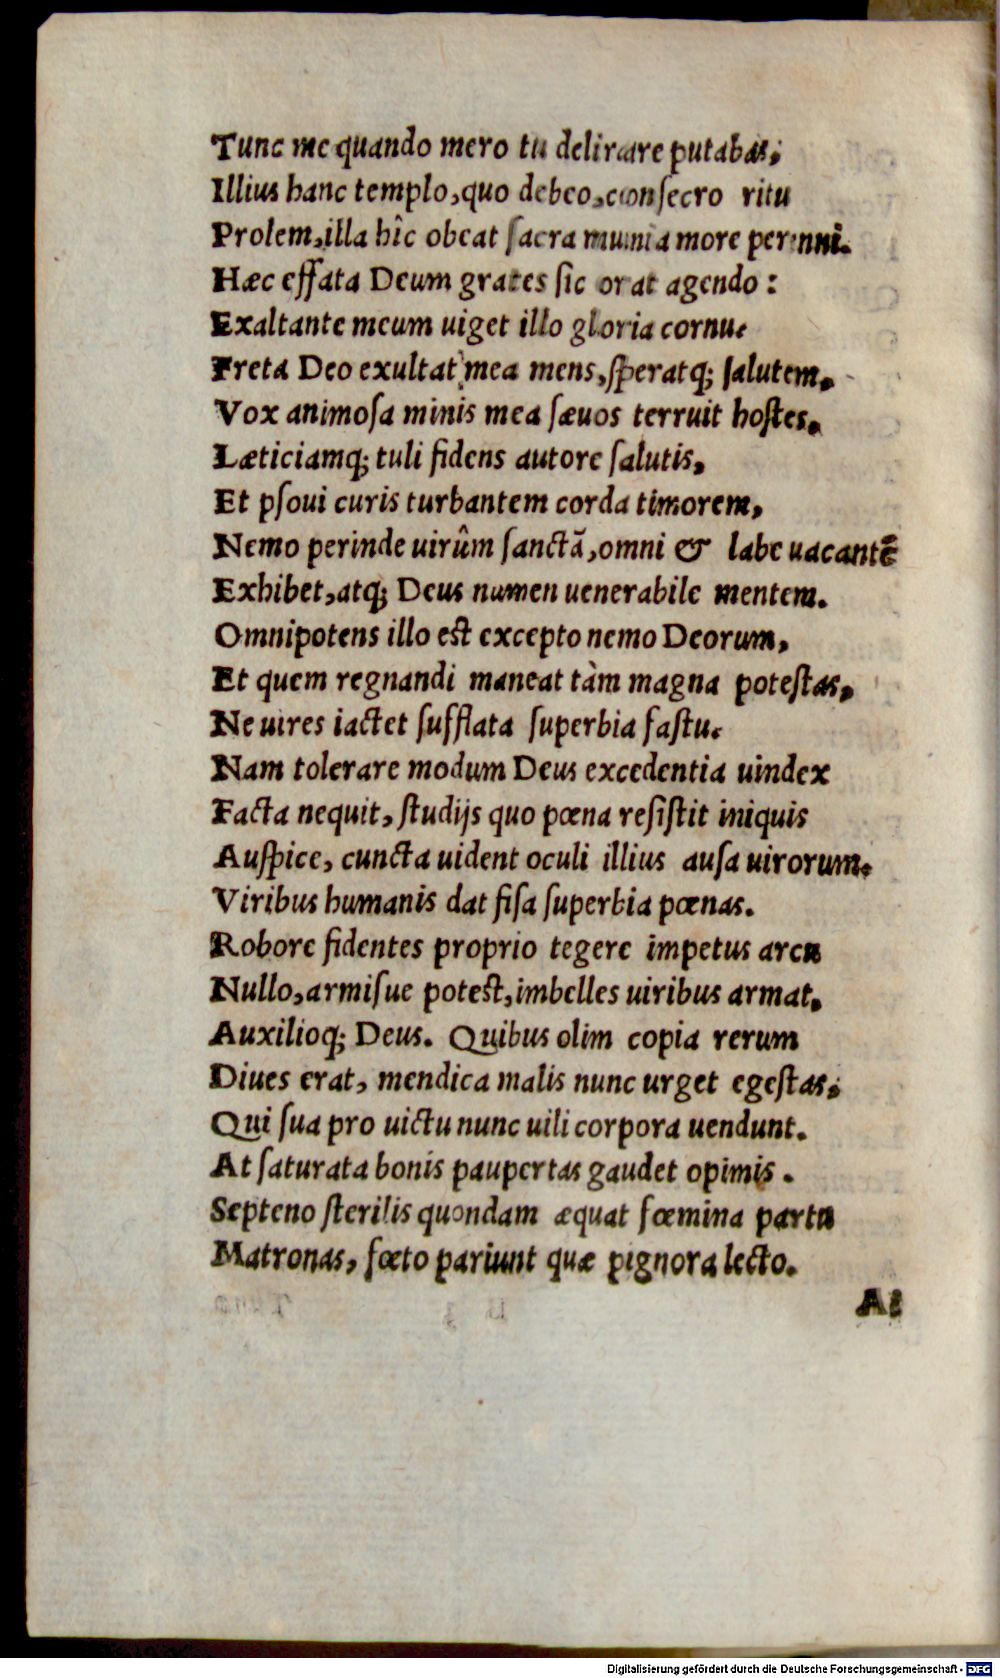 Tunc me quando mero tu delirare putabas,
Illius hanc templo, quo debeo, consecro ritu
Prolem, illa hîc obeat sacra munia more perenni.
Hæc effata Deum grates sic orat agendo:
Exaltante meum uiget illo gloria cornu.
Freta Deo exultat mea mens, speratq; salutem,
Vox animosa minis mea sæuos terruit hostes,
Læticiamq; tuli fidens autore salutis,
Et psoui curis turbantem corda timorem,
Nemo perinde uirûm sanctā, omni & labe uacantē
Exhibet, atq; Deus numen uenerabile mentem.
Omnipotens illo est excepto nemo Deorum,
Et quem regnandi maneat tàm magna potestas,
Ne uires iactet sufflata superbia fastu.
Nam tolerare modum Deus excedentia uindex
Facta nequit, studijs quo pœna resistit iniquis
Auspice, cuncta uident oculi illius ausa uirorum.
Viribus humanis dat fisa superbia pœnas.
Robore fidentes proprio tegere impetus arcu
Nullo, armisue potest, imbelles uiribus armat,
Auxilioq; Deus. Quibus olim copia rerum
Diues erat, mendica malis nunc urget egestas,
Qui sua pro uictu nunc uili corpora uendunt.
At saturata bonis paupertas gaudet opimis.
Septeno sterilis quondam æquat fœmina partu
Matronas, fœto pariunt quæ pignora lecto.
At
Digitalisierung gefördert durch die Deutsche Forschungsgemeinschaft - DFG